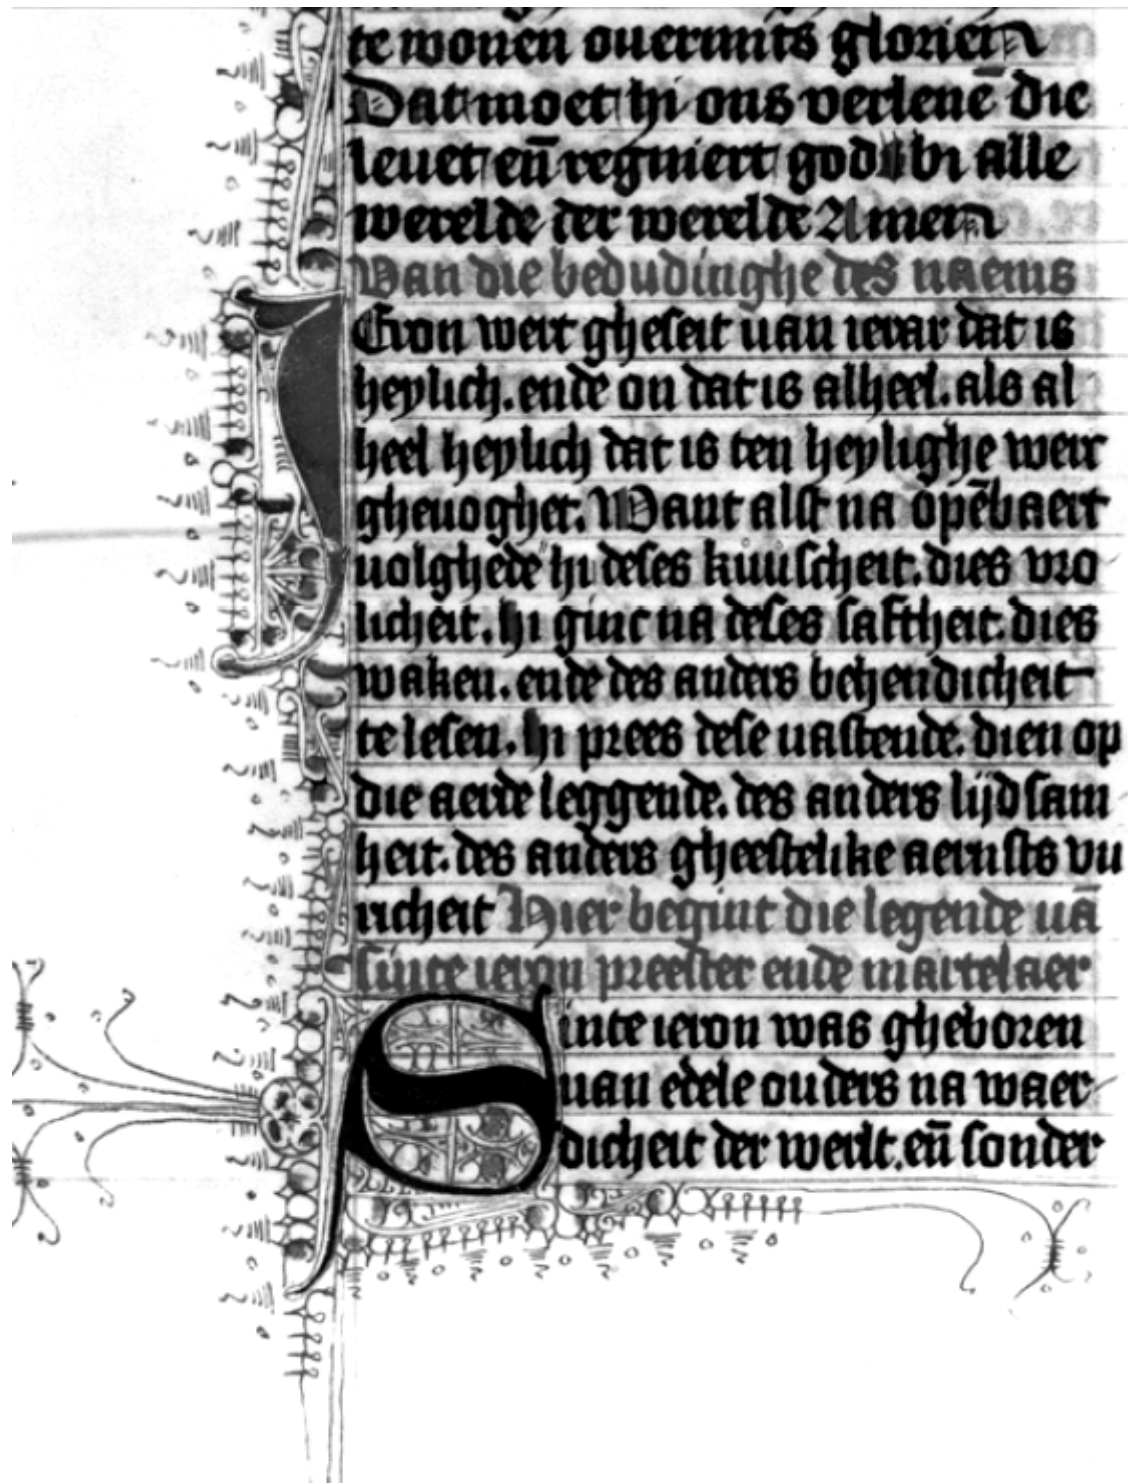 te wonen ouermits glorien
Dat moet hi ons verlenē die
leuet en̄ regniert god bi alle
werelde der werelde Amen
Van die bedudinghe des naems
Ieron wert gheseit uan ierar dat is
heylich. ende on dat is alheel. als al
heel heylich dat is ten heylighe werc
gheuoghet. Want alst na opēbaert
uolghede hi deses kuuscheit. dies vro
licheit. hi ginc na deses saftheit. dies
waken. ende des anders behendicheit
te lesen. hi prees dese uastende. dien op
die aerde leggende. des anders lijdsam
heit. des anders gheestelike aernsts vu
richeit Hier begint die legende uā
sinte ieron preester ende martelaer
Sinte ieron was gheboren
uan edele ouders na waer
dicheit der werlt. en̄ sonder